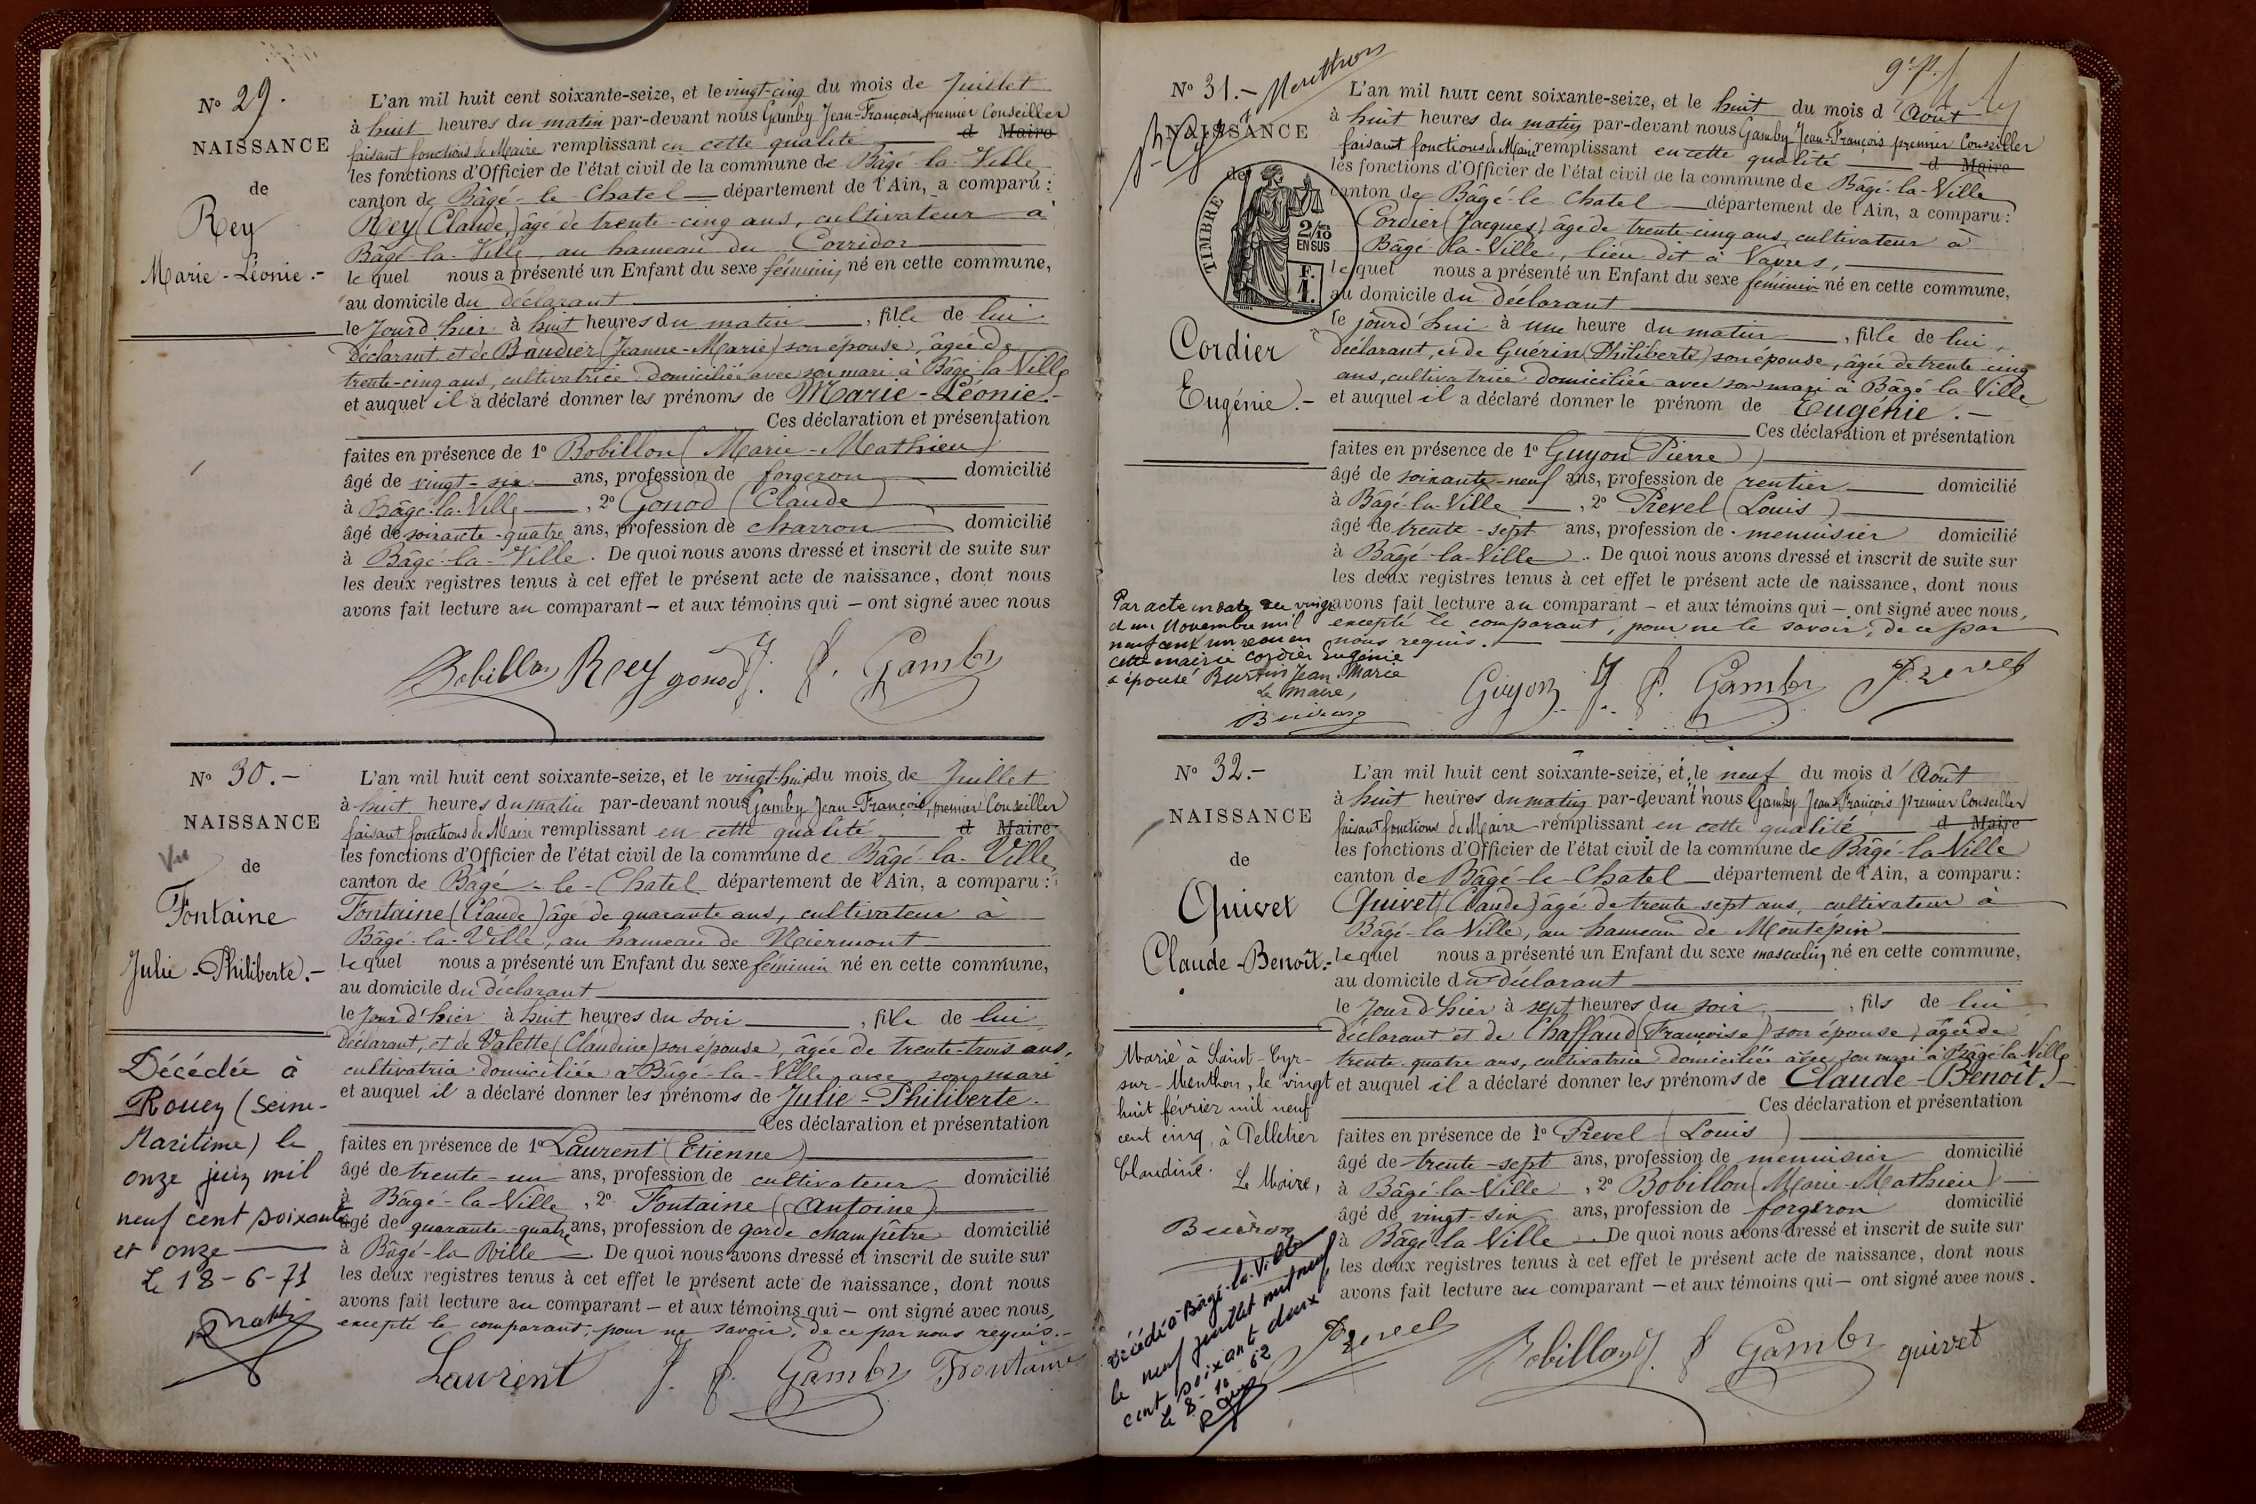 N° 29.
NAISSANCE
de
Rey
Marie-Léonie.-
L'an mil huit cent soixante-seize, et le vingt-cinq du mois de Juillet
à huit heures du matin par-devant nous Gamby Jean-François, premier Conseiller
faisant fonctions de Maire remplissant en cette qualité d Maire
les fonctions d'Officier de l'état civil de la commune de Bâgé-la-Ville
canton de Bâgé-le-Chatel département de l'Ain, a comparu :
Rey (Claude,) âgé de trente-cinq ans, cultivateur à
Bâgé-la-Ville, au hameau du Corridor
lequel nous a présenté un Enfant du sexe féminin né en cette commune,
au domicile du déclarant
le Jour d'hier à huit heures du matin, fille de lui
déclarant, et de Baudier (Jeanne-Marie) son épouse, âgée de
trente-cinq ans, cultivatrice domiciliée avec son mari à Bâgé la Ville
et auquel il a déclaré donner les prénoms de Marie-Léonie.-
Ces déclaration et présentation
faites en présence de 1° Bobillon (Marie-Mathieu)
âgé de vingt-six ans, profession de forgeron domicilié
à Bâgé-la-Ville, 2° Gonod (Claude)
âgé de soixante-quatre ans, profession de charron domicilié
à Bâgé-la-Ville. De quoi nous avons dressé et inscrit de suite sur
les deux registres tenus à cet effet le présent acte de naissance, dont nous
avons fait lecture au comparant — et aux témoins qui — ont signé avec nous
Bobillon Rey gonod J. f. Gamby
N° 30.-
NAISSANCE
Vu
de
Fontaine
Julie-Philiberte.-
Décédée à
Rouen (Seine-
Maritime) le
onze juin mil
neuf cent soixante
et onze
Le 18-6-71
L'an mil huit cent soixante-seize, et le vingt-huit du mois de Juillet
à huit heures du matin par-devant nous Gamby Jean-François, premier Conseiller
faisant fonctions de Maire remplissant en cette qualité d Maire
les fonctions d'Officier de l'état civil de la commune de Bâgé-la-Ville
canton de Bâgé-le-Chatel département de l'Ain, a comparu :
Fontaine (Claude) âgé de quarante ans, cultivateur à
Bâgé-la-Ville, au hameau de Niermont
lequel nous a présenté un Enfant du sexe féminin né en cette commune,
au domicile du déclarant
le Jour d'hier à huit heures du soir, fille de lui
déclarant, et de Valette (Claudine) son épouse, âgée de trente-trois ans,
cultivatrice domiciliée à Bâgé-la-Ville avec son mari
et auquel il a déclaré donner les prénoms de Julie-Philiberte.
Ces déclaration et présentation
faites en présence de 1° Laurent (Etienne)
âgé de trente-un ans, profession de cultivateur domicilié
à Bâgé-la-Ville, 2° Fontaine (Antoine)
âgé de quarante-quatre ans, profession de garde champêtre domicilié
à Bâgé-la Ville. De quoi nous avons dressé et inscrit de suite sur
les deux registres tenus à cet effet le présent acte de naissance, dont nous
avons fait lecture au comparant — et aux témoins qui — ont signé avec nous,
excepté le comparant, pour ne savoir, de ce par nous requis.-
Laurent J. f. Gamby Fontaine
N° 31.-
NAISSANCE
de
TIMBRE
2/10
EN SUS
F.
1.
Cordier
Eugénie.-
Par acte en date du vingt
et un Novembre mil
neuf cent un reçu en
cette mairie Cordier Eugénie
a épousé Burtin Jean Marie
Le Maire,
L'an mil huit cent soixante-seize, et le huit du mois d'Août
à huit heures du matin par-devant nous Gamby Jean-François premier Conseiller
faisant fonctions de Maire remplissant en cette qualité d Maire
les fonctions d'Officier de l'état civil de la commune de Bâgé-la-Ville
canton de Bâgé-le Chatel département de l'Ain, a comparu :
Cordier (Jacques) âgé de trente-cinq ans, cultivateur à
Bâgé-la-Ville, lieu dit à Vavres,
lequel nous a présenté un Enfant du sexe féminin né en cette commune,
au domicile du déclarant
le jourd'hui à une heure du matin, fille de lui,
déclarant, et de Guérin (Philiberte) son épouse, âgée de trente-cinq
ans, cultivatrice domiciliée avec son mari à Bâgé-la-Ville
et auquel il a déclaré donner le prénom de Eugénie.-
Ces déclaration et présentation
faites en présence de 1° Guyon Pierre)
âgé de soixante-neuf ans, profession de rentier domicilié
à Bâgé-la-Ville, 2° Prevel (Louis)
âgé de trente-sept ans, profession de menuisier domicilié
à Bâgé-la-Ville. De quoi nous avons dressé et inscrit de suite sur
les deux registres tenus à cet effet le présent acte de naissance, dont nous
avons fait lecture au comparant — et aux témoins qui — ont signé avec nous,
excepté le comparant, pour ne le savoir, de ce par
nous requis.
Guyon J. f. Gamby Prevel
N° 32.-
NAISSANCE
de
Quivet
Claude-Benoît.-
Marié à Saint-Cyr-
sur-Menthon, le vingt
huit février mil neuf
cent cinq, à Pelletier
Claudine.
Le Maire,
Décédé à Bâgé-la-Ville
le neuf juillet mil neuf
cent soixante deux
Le 8-10-62
L'an mil huit cent soixante-seize, et le neuf du mois d'Août
à huit heures du matin par-devant nous Gamby Jean-François premier Conseiller
faisant fonctions de Maire remplissant en cette qualité d Maire
les fonctions d'Officier de l'état civil de la commune de Bâgé-la Ville
canton de Bâgé-le-Chatel département de l'Ain, a comparu :
Quivet (Claude) âgé de trente sept ans, cultivateur à
Bâgé-la Ville, au hameau de Montépin
lequel nous a présenté un Enfant du sexe masculin né en cette commune,
au domicile du déclarant
le Jour d'hier à sept heures du soir, fils de lui
déclarant et de Chaffaud (Françoise) son épouse, âgée de
trente-quatre ans, cultivatrice domiciliée avec son mari à Bâgé-la Ville
et auquel il a déclaré donner les prénoms de Claude-Benoît.-
Ces déclaration et présentation
faites en présence de 1° Prevel (Louis)
âgé de trente-sept ans, profession de menuisier domicilié
à Bâgé-la-Ville, 2° Bobillon (Marie-Mathieu)
âgé de vingt-six ans, profession de forgeron domicilié
à Bâgé-la Ville. De quoi nous avons dressé et inscrit de suite sur
les deux registres tenus à cet effet le présent acte de naissance, dont nous
avons fait lecture au comparant — et aux témoins qui — ont signé avec nous.
Prevel Bobillon J. f. Gamby quivet